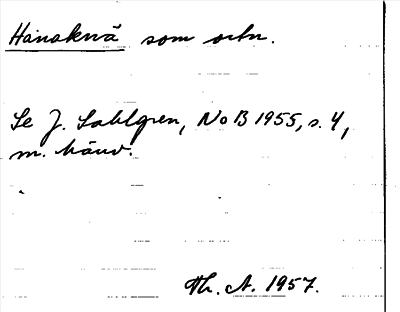 Hanaknä som ortn.
Se J. Sahlgren, NoB 1955, s. 4,
m. hänv.
Th. A. 1957.